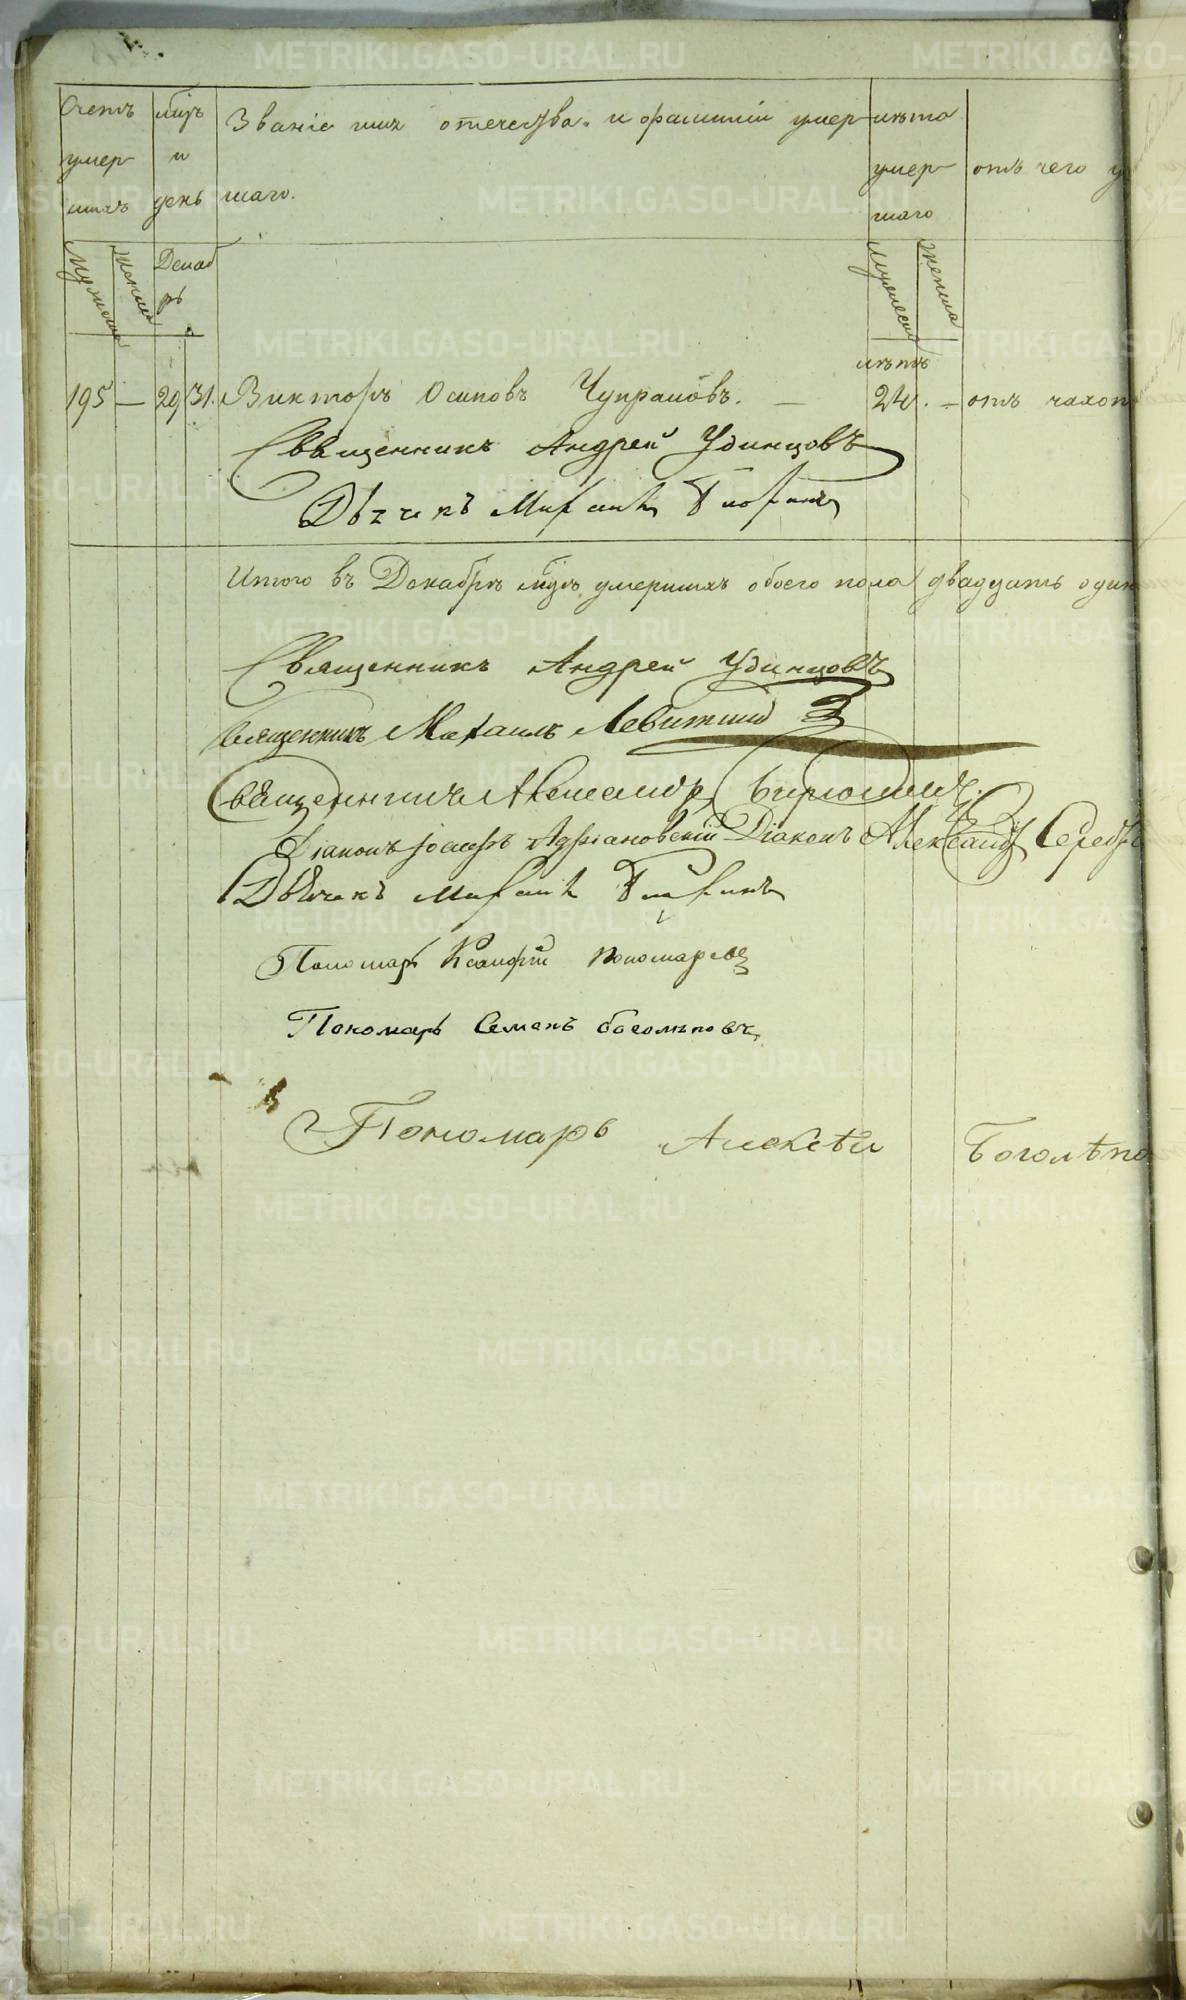 Счетъ умер шихъ
мцъ и день
Званіе имя отечества и фамилія умер шаго.
лѣта умер шаго
отъ чего у
Мужеска
Женска
Декаб рь
Мужеска
Женска
лѣтъ
195 — 29 31. Викторъ Осиповъ — 24. — отъ чахот
Священникъ Андрей Удинцовъ
Дьячекъ
Итого въ Декабрѣ мцѣ умершихъ обоего пола двадцать один
Священникъ Андрей Удинцовъ
Священникъ Михаилъ Левитскій
Священникъ Александръ
Діаконъ Іоасафъ Адріановскій Діаконъ Александръ Серебр
Дьячекъ
Пономарь Пономаревъ
Пономарь Семенъ Боголѣповъ
Пономарь Алексѣй Боголѣпо
METRIKI.GASO-URAL.RU